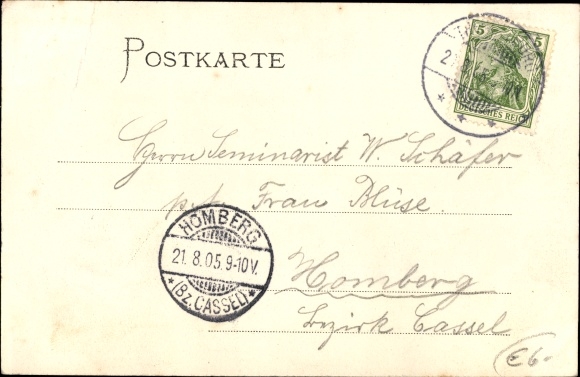 POSTKARTE
5 5
DEUTSCHES REICH
Herrn Seminarist W. Schäfer
Frau Bluse.
HOMBERG
21.8.05.9-10V.
* (BZ.CASSEL) *
Homberg
bezirk Cassel
€6.-